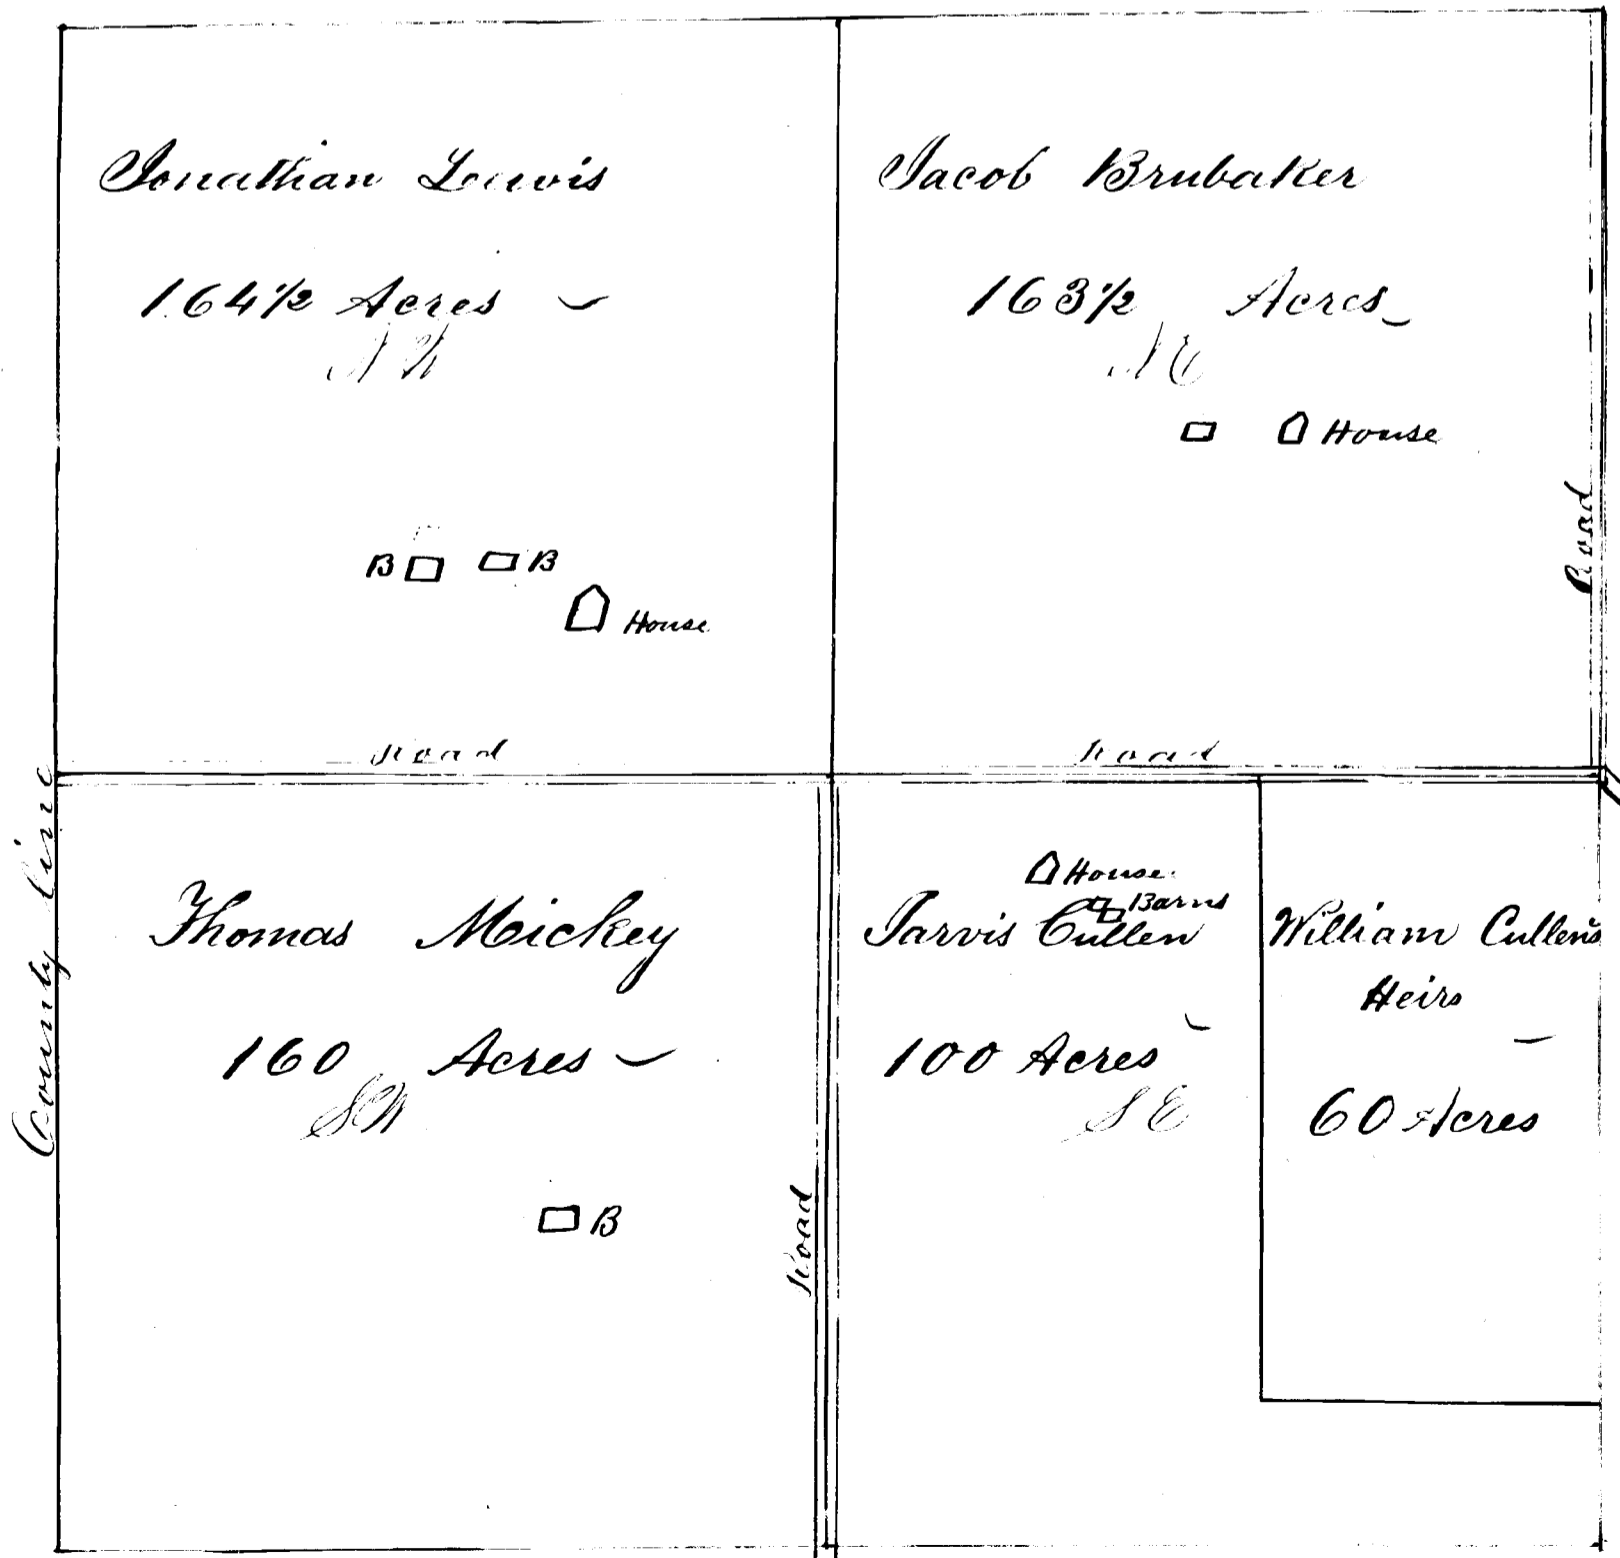 Jonathan Lewis
164 1/2 Acres
N W
B B
House
Road
Jacob Brubaker
163 1/2 Acres
N E
House
Road
Road
County Line
Thomas Mickey
160 Acres
S W
B
Road
House
Barns
Jarvis Cullen
100 Acres
S E
William Cullen's
Heirs
60 Acres